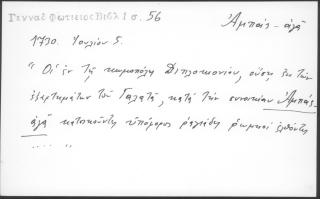 Γενναδ. Φωτιειος Βιβλ. 1 σ. 56
Ἀμπάς-ἀγᾶ
1730. Ἰουνίου 5.
" Οἱ ἐν τῇ κωμοπόλῃ Διπλοκιονίου, οὔσῃ ἐκ τῶν
ἐξαρτημάτων τοῦ Γαλατᾶ, κατὰ τὴν συνοικίαν Ἀμπάς-
ἀγᾶ κατοικοῦντες εὐπόροι ραγιάδες ρωμαῖοι ἐλθόντες
.... "